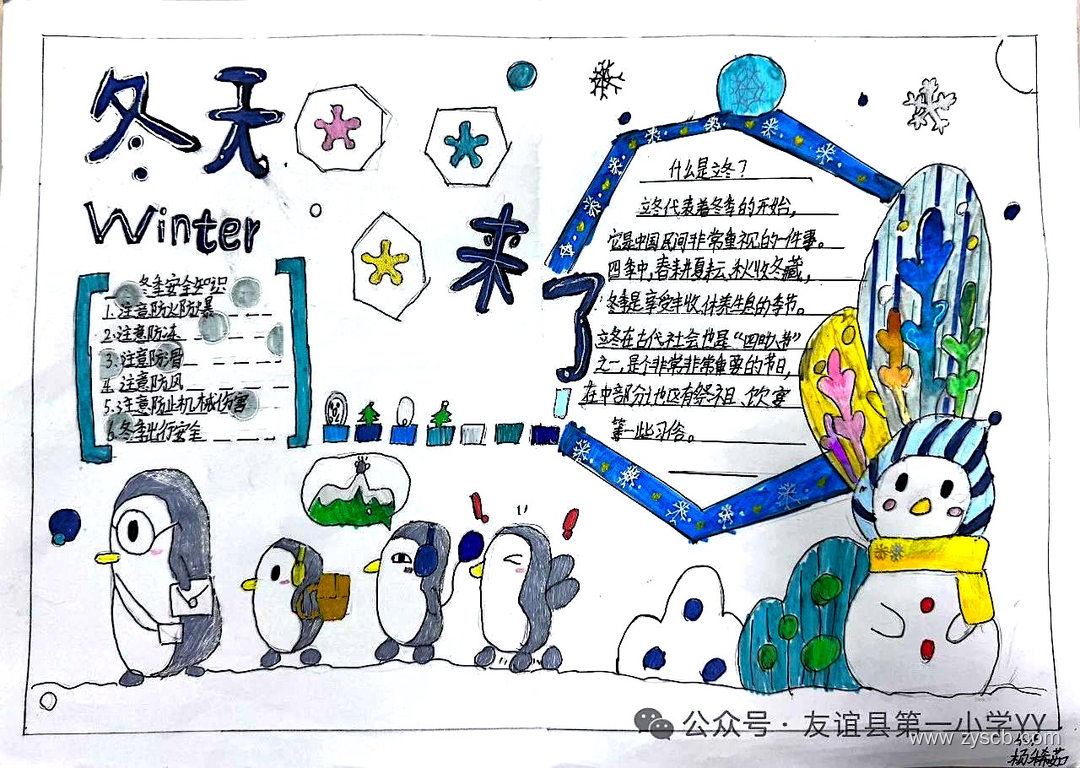 冬天
Winter
来了
冬季安全知识
1.注意防火防爆
2.注意防冻
3.注意防滑
4.注意防风
5.注意防止机械伤害
6.冬季出行安全
什么是立冬？
立冬代表着冬季的开始，
它是中国民间非常重视的一件事。
四季中，春耕夏耘，秋收冬藏，
冬季是享受丰收、休养生息的季节。
立冬在古代社会也是“四时八节”
之一，是个非常非常重要的节日，
在中部分地区有祭祖、饮宴
等一些习俗。
公众号·友谊县第一小学YY
www.zyscb.com